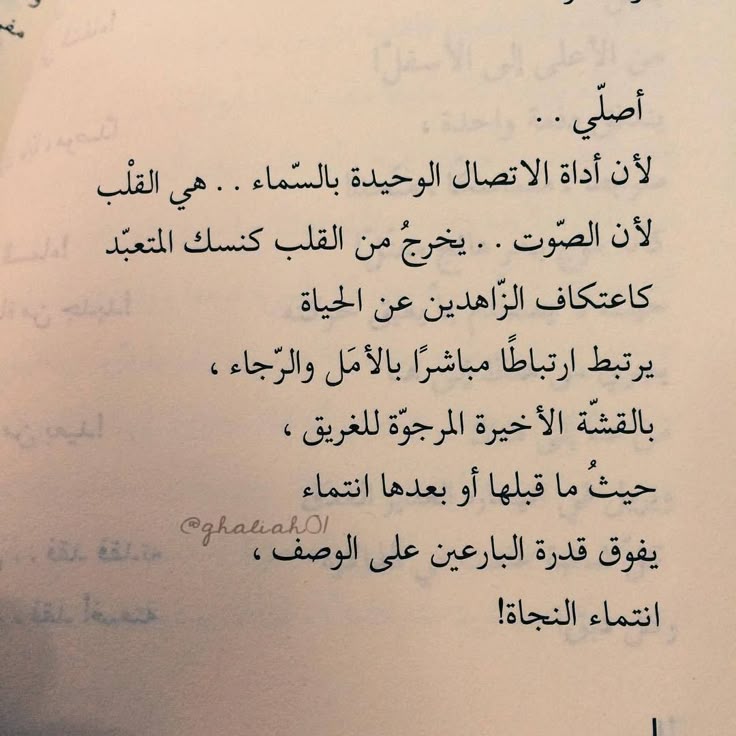 أصلّي . .
لأن أداة الاتصال الوحيدة بالسّماء . . هي القلْب
لأن الصّوت . . يخرجُ من القلب كنسك المتعبّد
كاعتكاف الزّاهدين عن الحياة
يرتبط ارتباطًا مباشرًا بالأمَل والرّجاء ،
بالقشّة الأخيرة المرجوّة للغريق ،
حيثُ ما قبلها أو بعدها انتماء
@ghaliah01
يفوق قدرة البارعين على الوصف ،
انتماء النجاة!